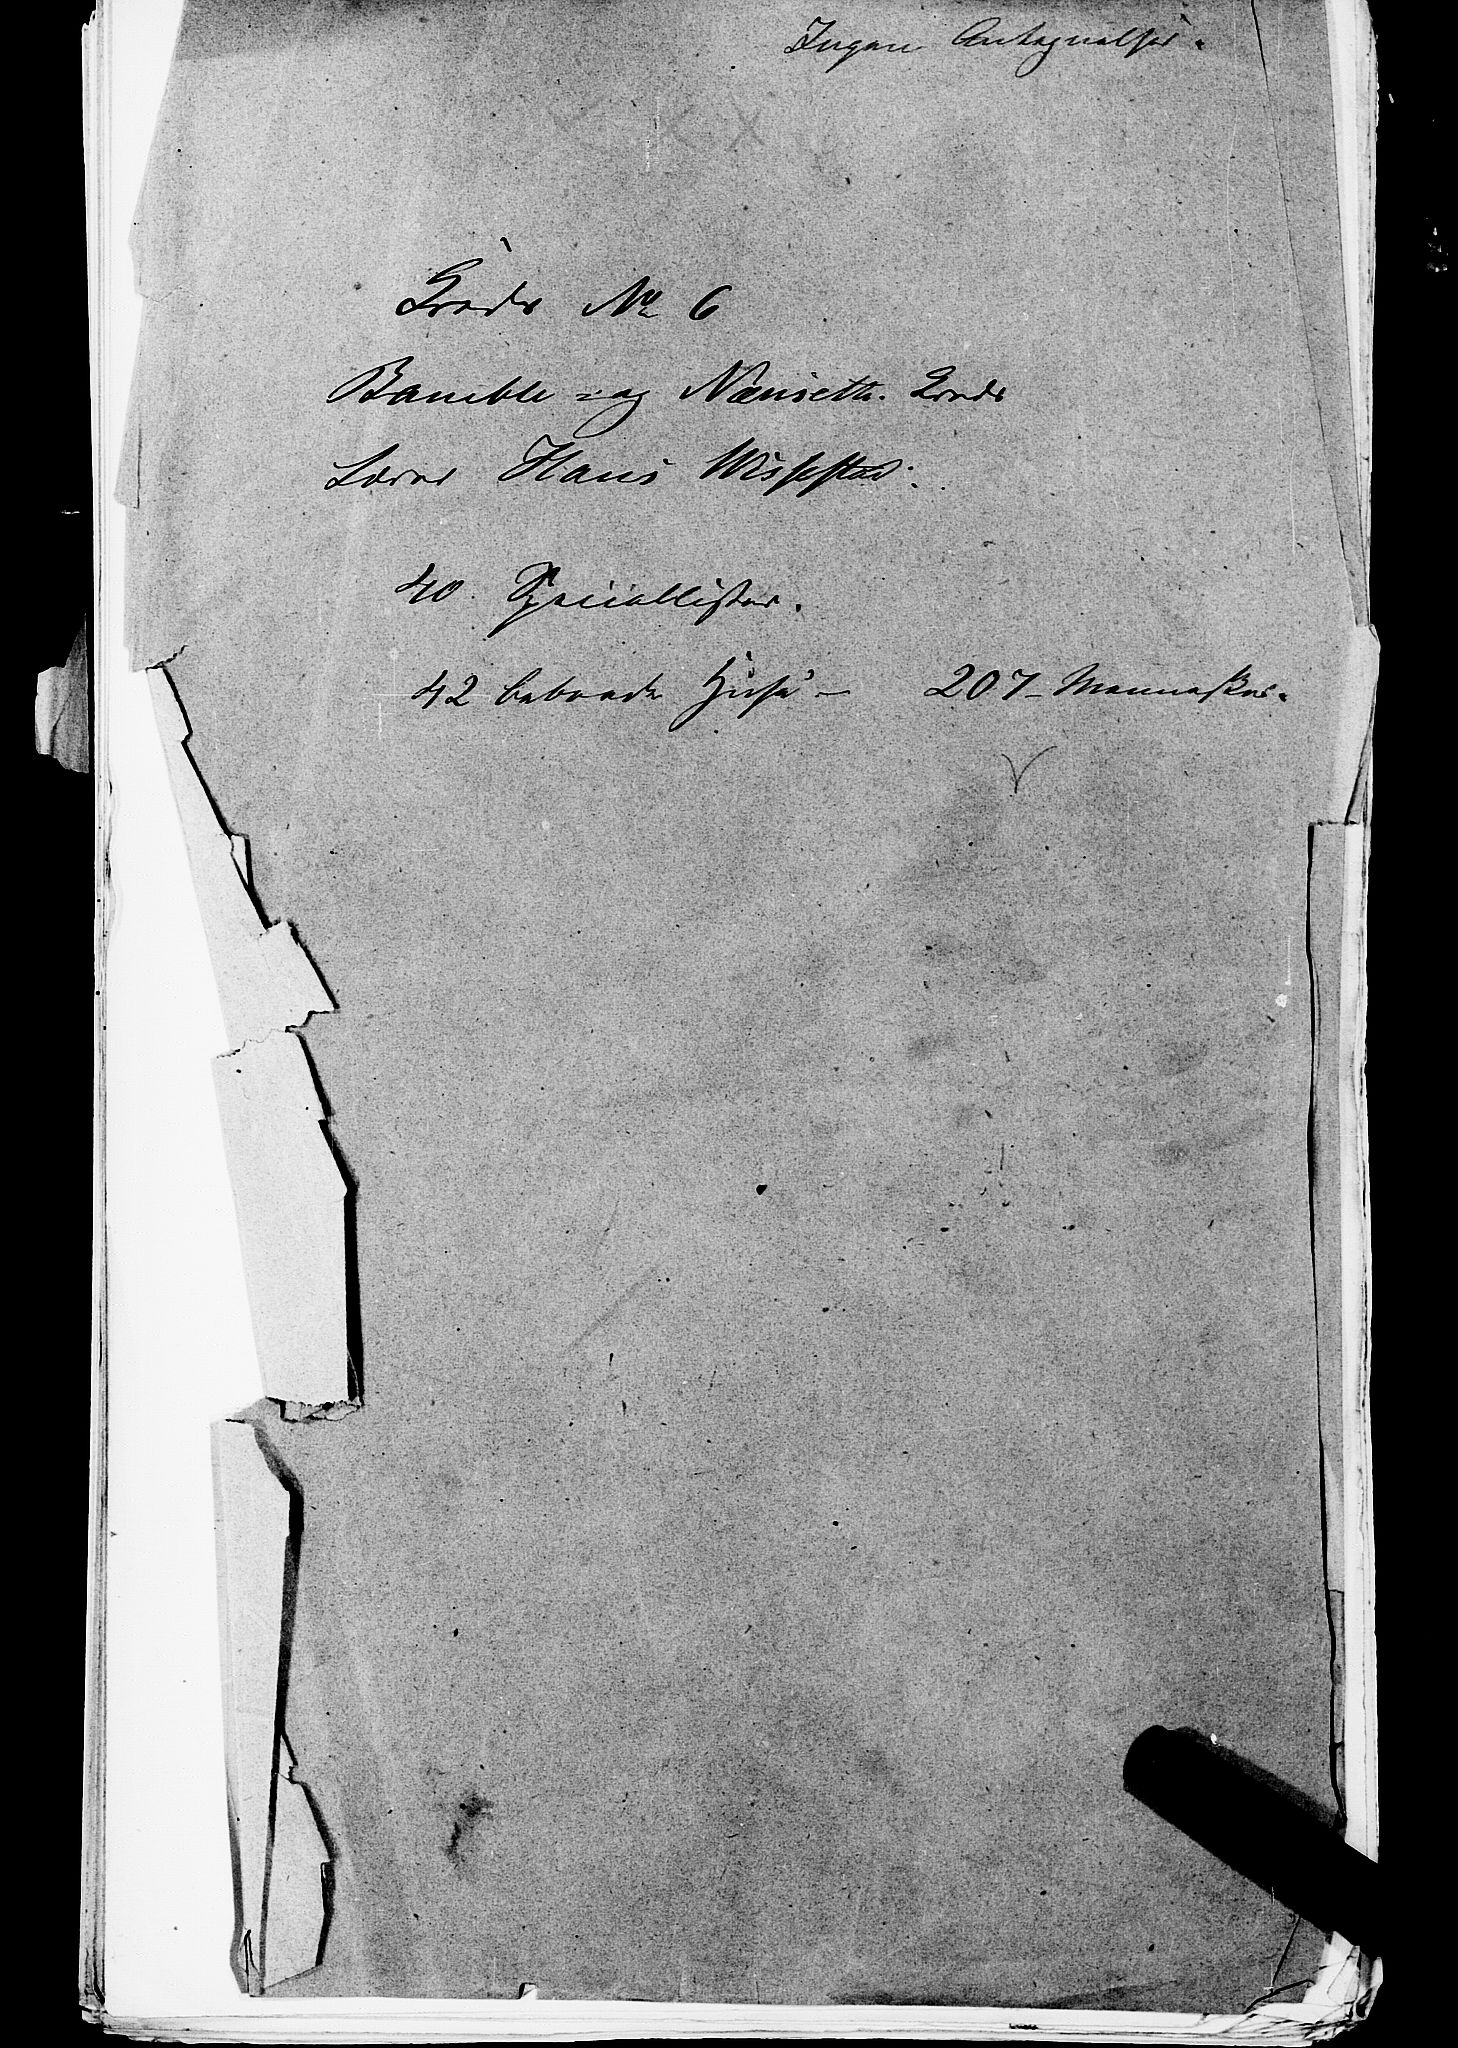 Ingen Antegnelser.
Kreds No 6
Bamble og Nænseth. Kreds
Lærer Hans Wissestad.
40 Speciallister.
42 beboede Huse – 207 – Mennesker.